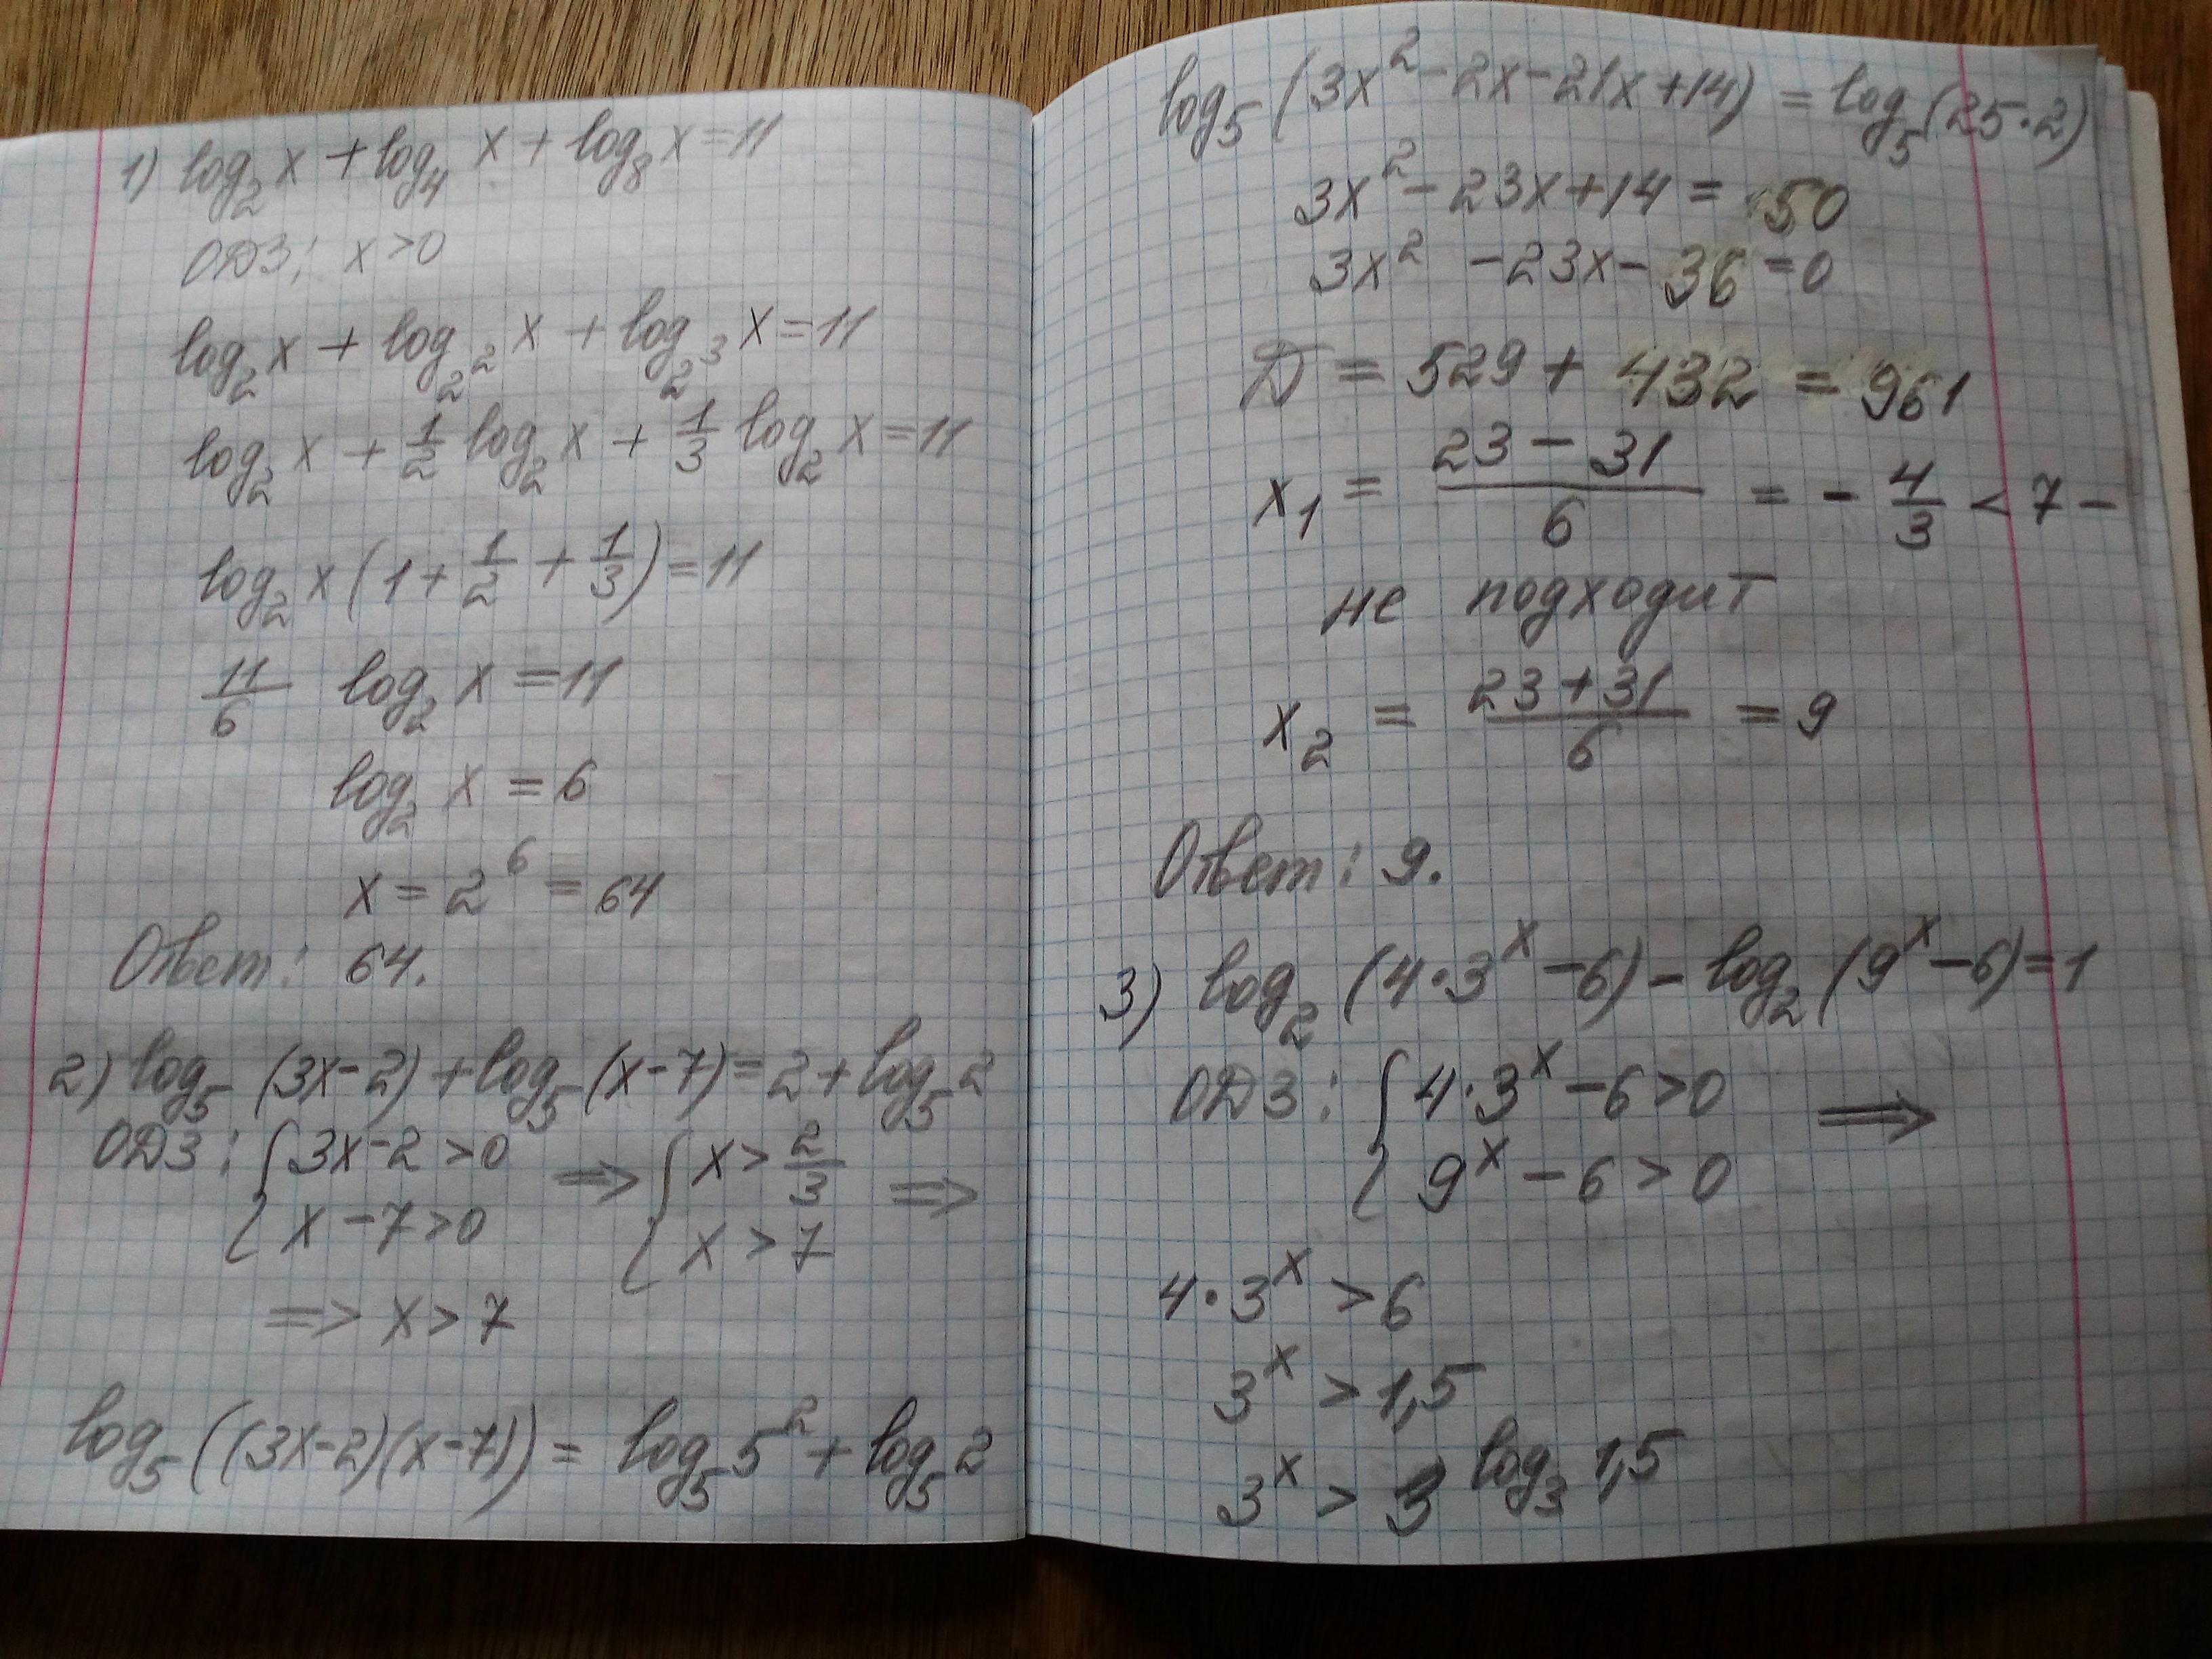 1) log₂x + log₄x + log₈x = 11
ОДЗ: x > 0
log₂x + log_{2²}x + log_{2³}x = 11
log₂x + 1/2 log₂x + 1/3 log₂x = 11
log₂x(1 + 1/2 + 1/3) = 11
11/6 log₂x = 11
log₂x = 6
x = 2⁶ = 64
Ответ: 64.
2) log₅(3x-2) + log₅(x-7) = 2 + log₅2
ОДЗ: { 3x-2 > 0 ⇒ { x > 2/3 ⇒
x-7 > 0 x > 7
⇒ x > 7
log₅((3x-2)(x-7)) = log₅5² + log₅2
log₅(3x²-2x-21x+14) = log₅(25·2)
3x²-23x+14 = 50
3x² -23x-36 = 0
D = 529 + 432 = 961
x₁ = (23 - 31)/6 = - 4/3 < 7 -
не подходит
x₂ = (23+31)/6 = 9
Ответ: 9.
3) log₂(4·3ˣ-6) - log₂(9ˣ-6) = 1
ОДЗ: { 4·3ˣ-6 > 0 ⇒
9ˣ-6 > 0
4·3ˣ > 6
3ˣ > 1,5
3ˣ > 3^{log₃1,5}